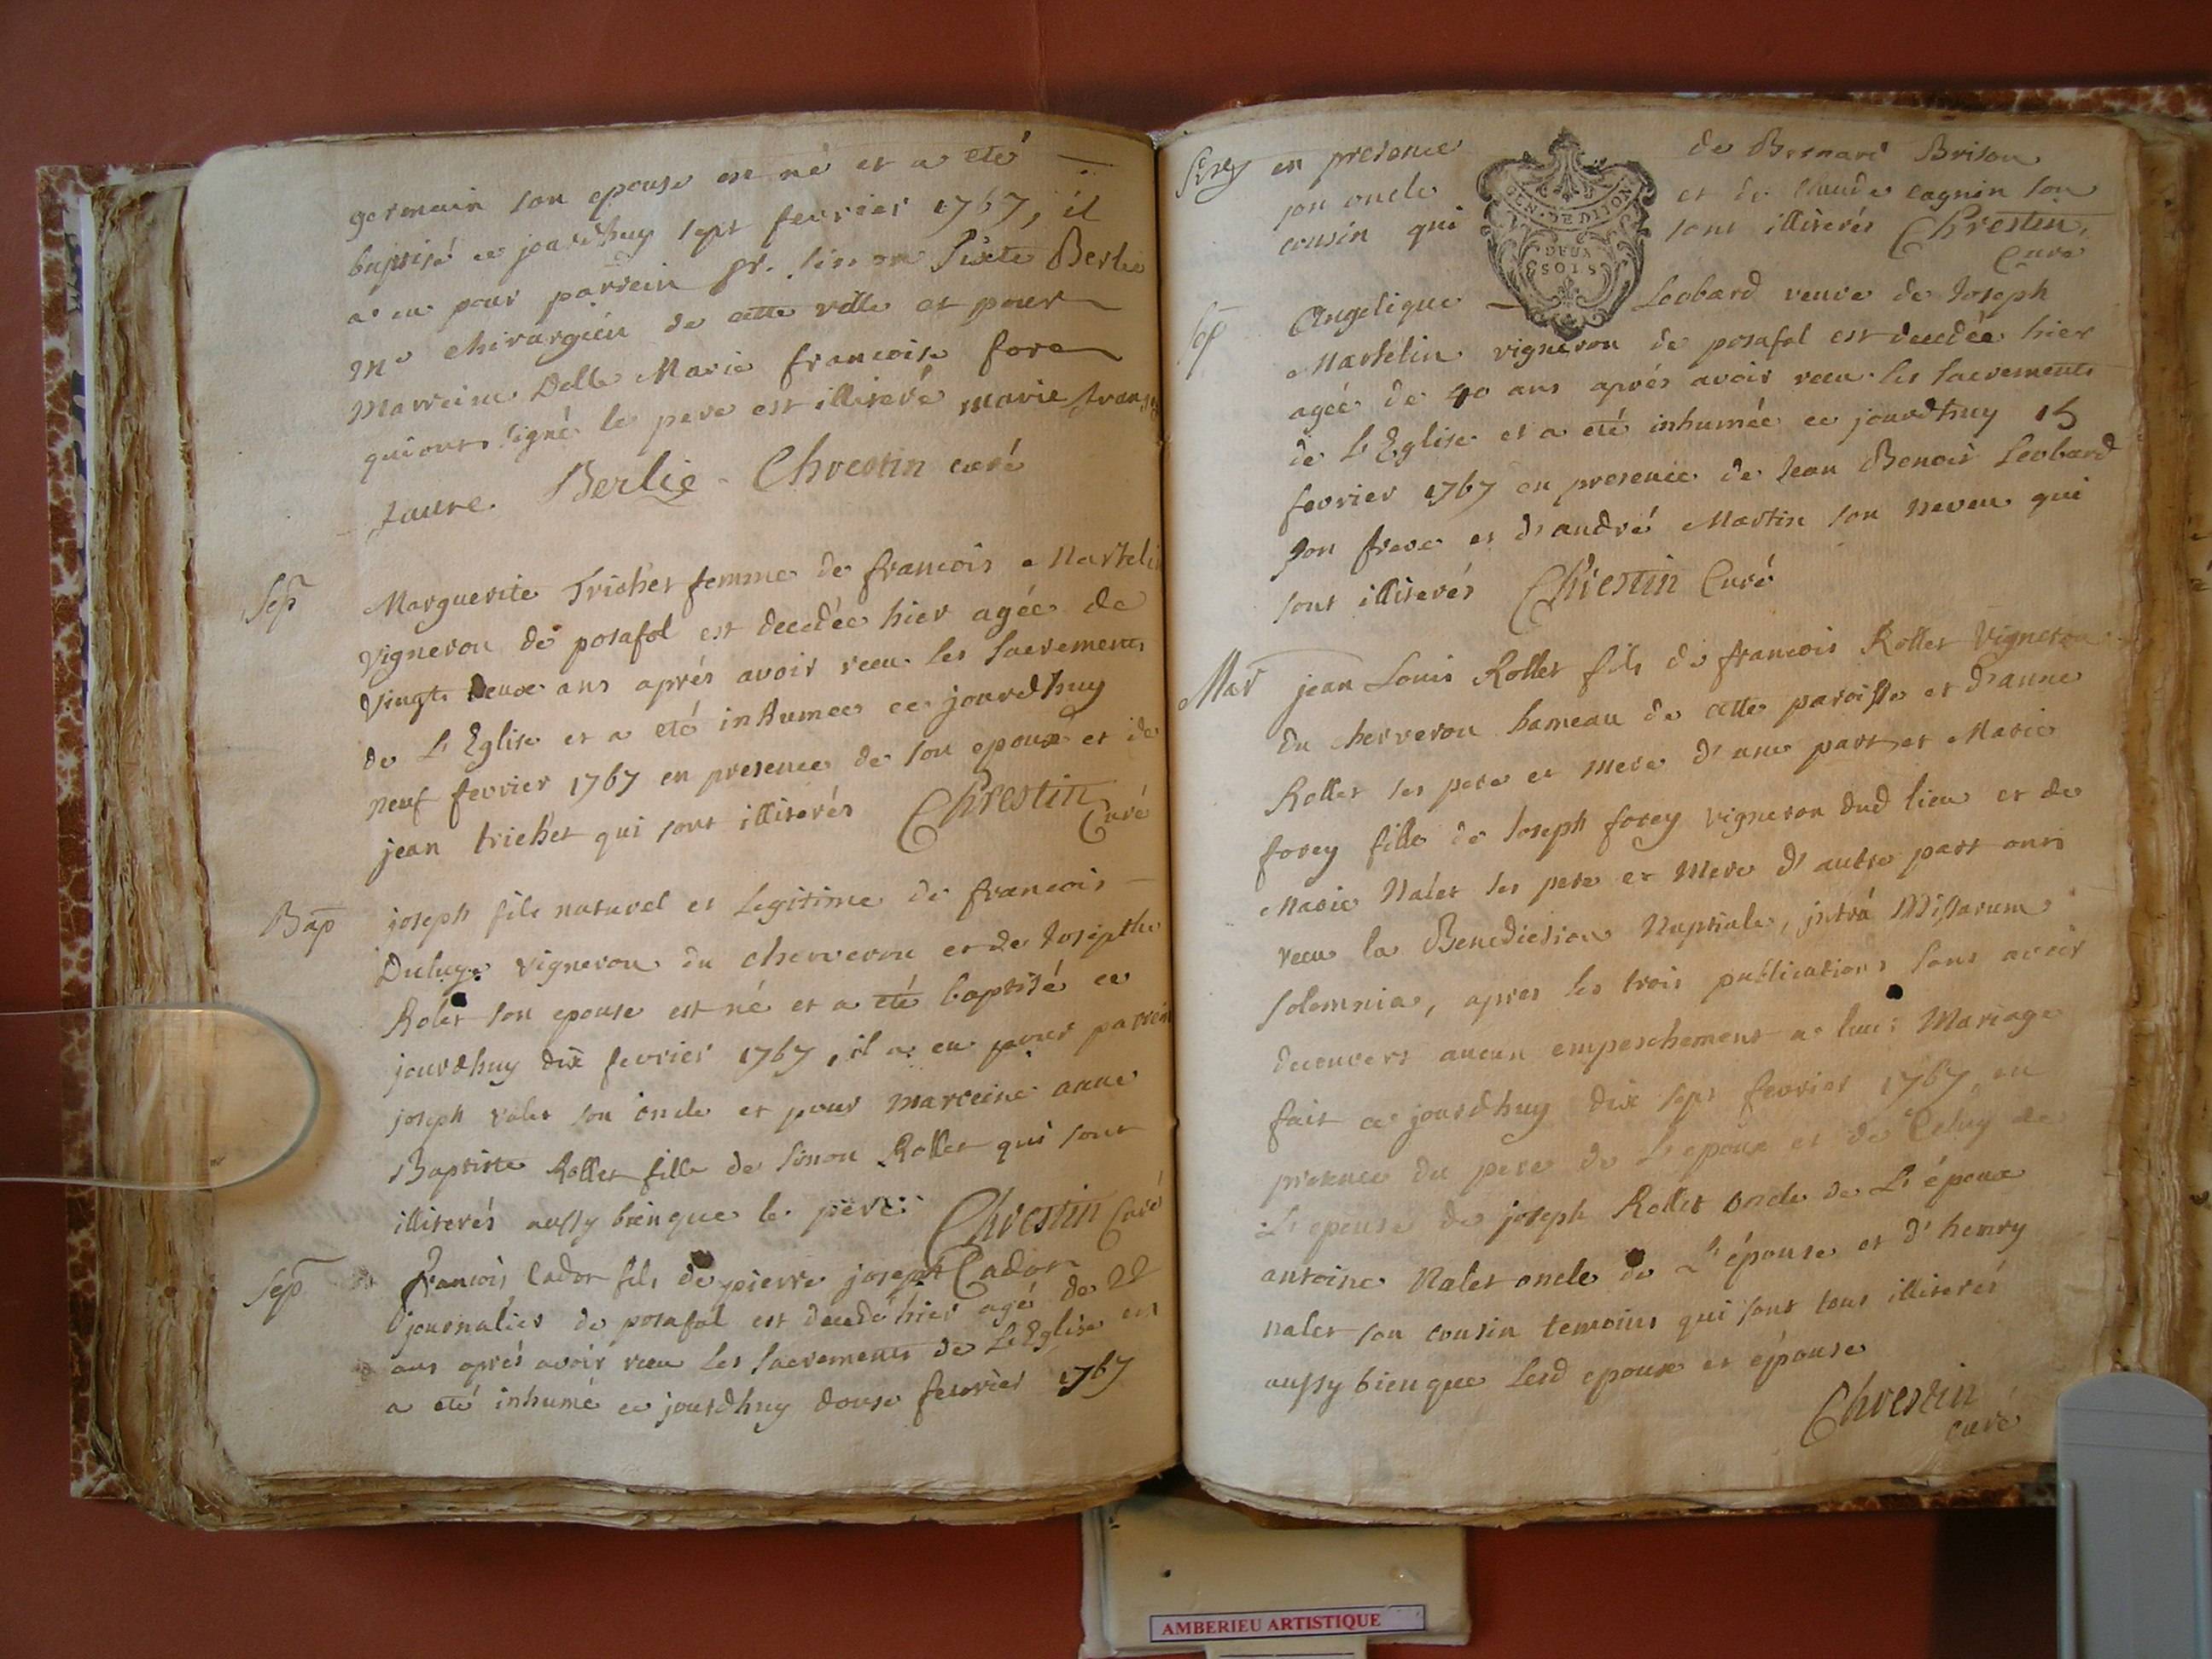 germain son epouse est né et a eté
baptisé ce jourdhuy sept fevrier 1767, il
a eu pour parrein sr. simon Sixte Berlie
Me chirurgien de cette ville et pour
Marreine Delle Marie francoise fore
qui ont signé le pere est illiteré marie fran
faure Berlie Chrestin curé
Sep
Marguerite Trichet femme de francois Martelin
vigneron de posafol est decedée hier agée de
vingt deux ans aprés avoir recu les sacrements
de L'Eglise et a eté inhumee ce jourdhuy
neuf fevrier 1767 en presence de son epoux et de
jean trichet qui sont illiterés Chrestin
Curé
Bap
joseph fils naturel et Legitime de francois
vigneron du cherveron et de Josephe
Rolet son epouse est né et a été baptisé ce
jourdhuy dix fevrier 1767, il a eu pour parrein
joseph rolet son oncle et pour marreine anne
Baptiste Rollet fille de simon Rollet qui sont
illiterés aussy bien que le pere Chrestin Curé
Sep
francois Cador fils de pierre joseph Cador
journalier de posafol est decedé hier agé de 22
ans aprés avoir recu les sacrements de L'Eglise et
a eté inhumé ce jourdhuy douse fevrier 1767
en presence de Bernard Brison
son oncle et de Claude cagnin son
cousin qui sont illiterés Chrestin
Curé
GEN. DE DIJON
DEUX
SOLS
Sep
Angelique Leobard veuve de Joseph
Martelin vigneron de posafol est decedée hier
agée de 40 ans aprés avoir recu les sacrements
de L'Eglise et a eté inhumée ce jourdhuy 15
fevrier 1767 en presence de Jean Benoit Leobard
son frere et d'andré Martin son neveu qui
sont illiterés Chrestin Curé
Mar
jean Louis Rollet fils de francois Rollet Vigneron
du cherveron hameau de cette paroisse et d'anne
Rollet ses pere et mere d'une part et Marie
forey fille de Joseph forey vigneron dud lieu et de
Marie Nalet ses pere et Mere d'autre part ont
recu la Benediction Nuptiale, jntrà Missarum
solemnia, apres les trois publications sans avoir
decouvert aucun empeschement a leur Mariage
fait ce jourdhuy dix sept fevrier 1767 en
presence du pere de L'epoux et de Celuy de
L'epouse de joseph Rollet oncle de L'époux
antoine Nalet oncle de L'épouse et d'henry
nalet son cousin temoins qui sont tous illiterés
aussy bien que Lesd epoux et épouse
Chrestin
curé
AMBERIEU ARTISTIQUE